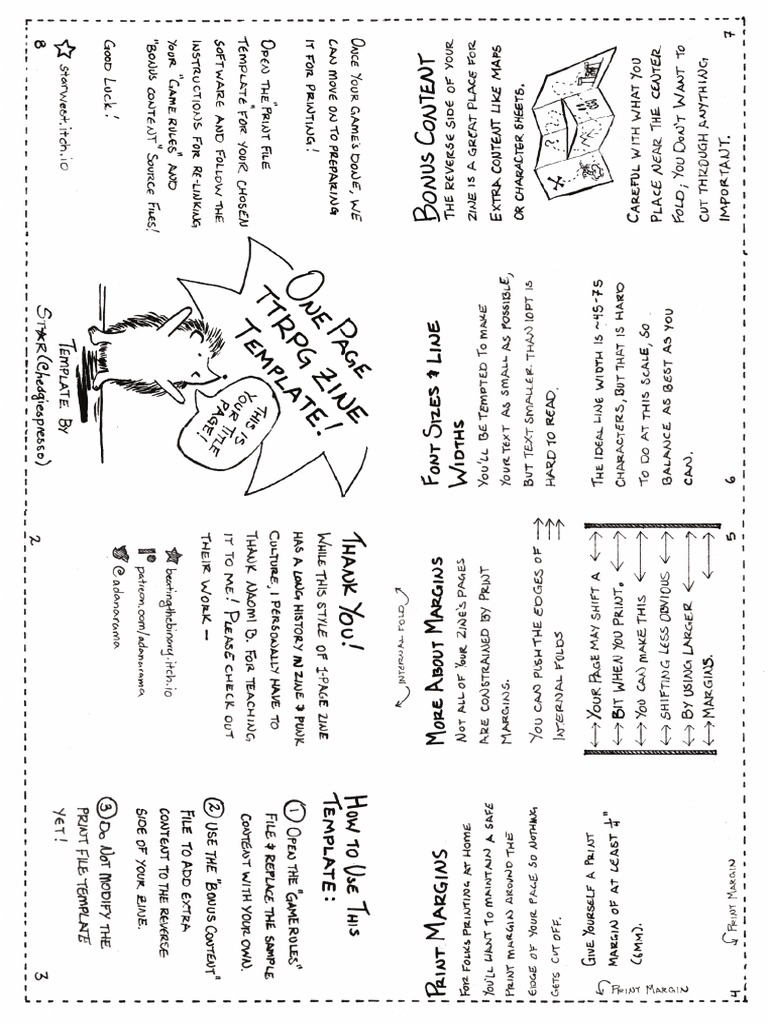 ONE PAGE
TTRPG ZINE
TEMPLATE!
THIS IS
YOUR TITLE
PAGE!
TEMPLATE BY
ST★R (@hedgiespresso)
THANK YOU!
WHILE THIS STYLE OF 1-PAGE ZINE
HAS A LONG HISTORY IN ZINE & PUNK
CULTURE, I PERSONALLY HAVE TO
THANK NAOMI B. FOR TEACHING
IT TO ME! PLEASE CHECK OUT
THEIR WORK —
beatingthebinary.itch.io
patreon.com/adanarama
@adanarama
2
HOW TO USE THIS
TEMPLATE:
① OPEN THE "GAME RULES"
FILE & REPLACE THE SAMPLE
CONTENT WITH YOUR OWN.
② USE THE "BONUS CONTENT"
FILE TO ADD EXTRA
CONTENT TO THE REVERSE
SIDE OF YOUR ZINE.
③ DO NOT MODIFY THE
PRINT FILE TEMPLATE
YET!
3
PRINT MARGINS
FOR FOLKS PRINTING AT HOME
YOU'LL WANT TO MAINTAIN A SAFE
PRINT MARGIN AROUND THE
EDGE OF YOUR PAGE SO NOTHING
GETS CUT OFF.
GIVE YOURSELF A PRINT
MARGIN OF AT LEAST ¼"
(6MM).
PRINT MARGIN
PRINT MARGIN
4
MORE ABOUT MARGINS
NOT ALL OF YOUR ZINE'S PAGES
ARE CONSTRAINED BY PRINT
MARGINS.
YOU CAN PUSH THE EDGES OF
INTERNAL FOLDS
INTERNAL FOLD
YOUR PAGE MAY SHIFT A
BIT WHEN YOU PRINT.
YOU CAN MAKE THIS
SHIFTING LESS OBVIOUS
BY USING LARGER
MARGINS.
5
FONT SIZES & LINE
WIDTHS
YOU'LL BE TEMPTED TO MAKE
YOUR TEXT AS SMALL AS POSSIBLE,
BUT TEXT SMALLER THAN 10PT IS
HARD TO READ.
THE IDEAL LINE WIDTH IS ~45-75
CHARACTERS, BUT THAT IS HARD
TO DO AT THIS SCALE, SO
BALANCE AS BEST AS YOU
CAN.
6
BONUS CONTENT
THE REVERSE SIDE OF YOUR
ZINE IS A GREAT PLACE FOR
EXTRA CONTENT LIKE MAPS
OR CHARACTER SHEETS.
CAREFUL WITH WHAT YOU
PLACE NEAR THE CENTER
FOLD; YOU DON'T WANT TO
CUT THROUGH ANYTHING
IMPORTANT.
7
ONCE YOUR GAME'S DONE, WE
CAN MOVE ON TO PREPARING
IT FOR PRINTING!
OPEN THE "PRINT FILE
TEMPLATE" FOR YOUR CHOSEN
SOFTWARE AND FOLLOW THE
INSTRUCTIONS FOR RE-LINKING
YOUR "GAME RULES" AND
"BONUS CONTENT" SOURCE FILES!
GOOD LUCK!
starwest.itch.io
8